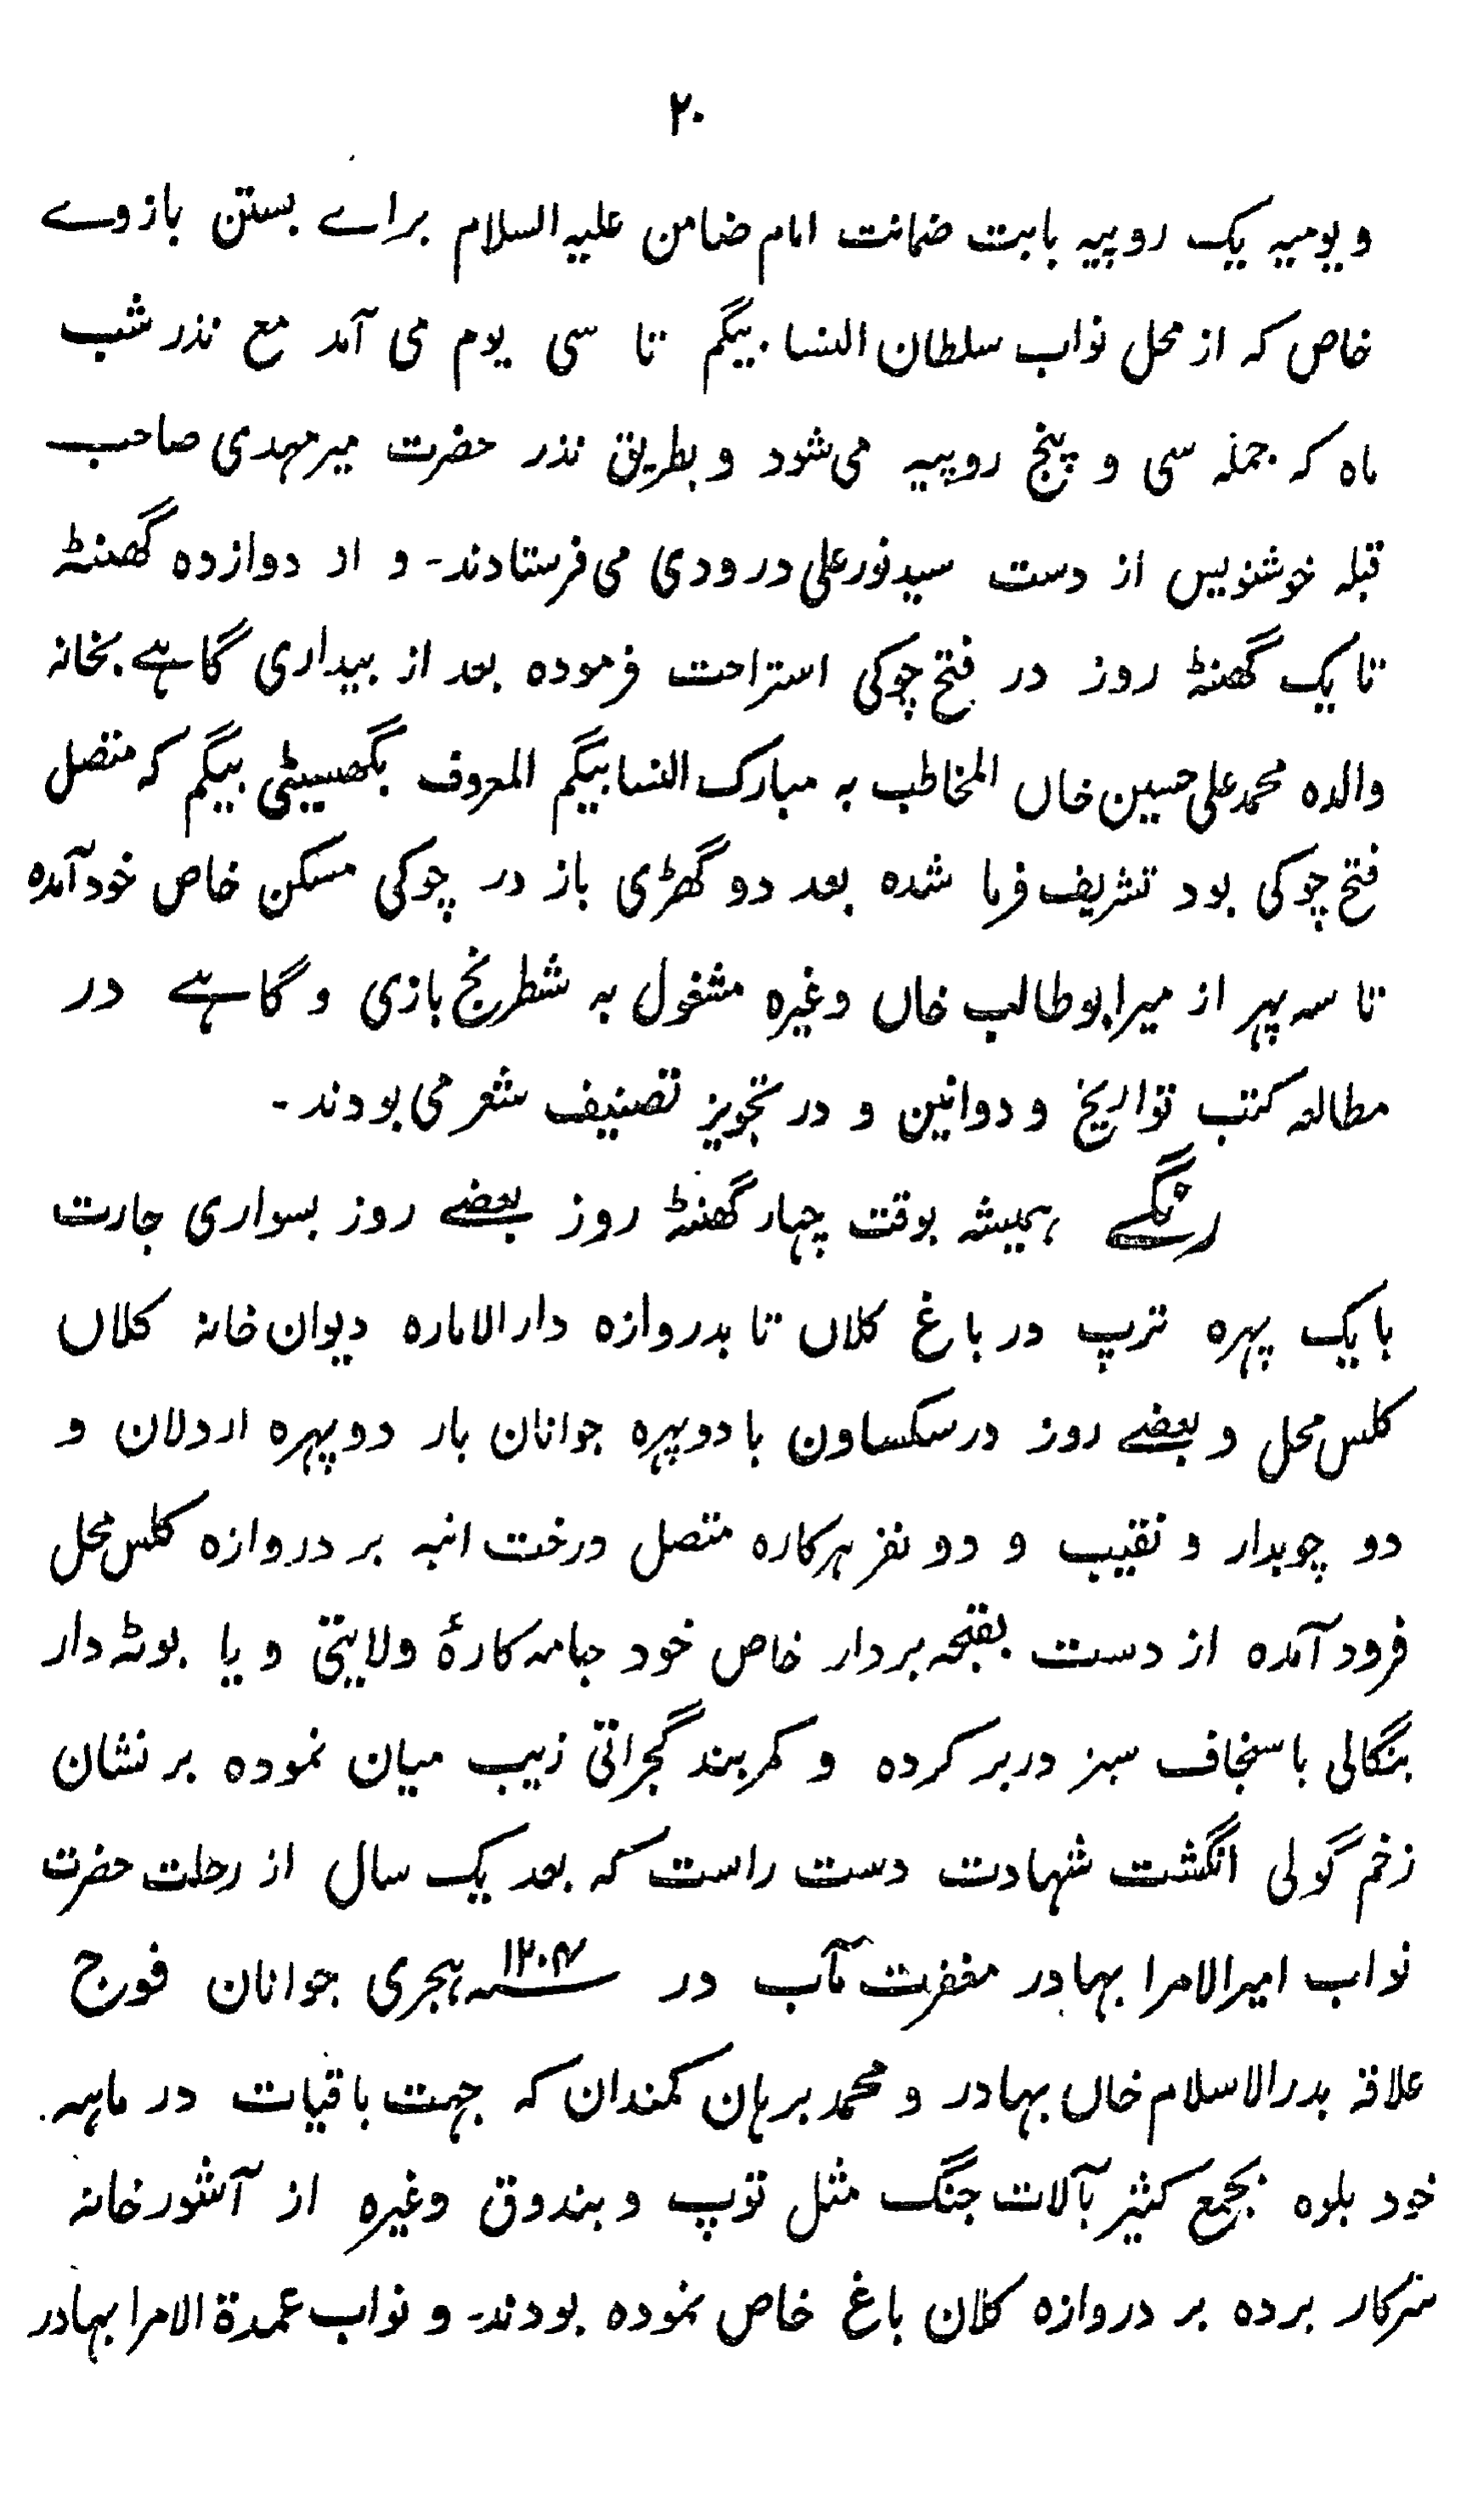 ۲۰
و یومیہ یک روپیہ بابت ضمانت امام ضامن علیہ السلام براے بستن بازوے
خاص کہ از محل نواب سلطان النسا بیگم تا سی یوم می آمد مع نذر شب
ماہ کہ جملہ سی و پنج روپیہ می شود و بطریق نذر حضرت میر مہدی صاحب
قبلہ خوشنویس از دست سید نور علی درودی می فرستادند۔ و از دوازدہ گھنٹہ
تا یک گھنٹہ روز در فتح چوکی استراحت فرمودہ بعد از بیداری گاہے بخانہ
والدہ محمد علی حسین خاں المخاطب بہ مبارک النسا بیگم المعروف بگھسیٹی بیگم کہ متصل
فتح چوکی بود تشریف فرما شدہ بعد دو گھڑی باز در چوکی مسکن خاص خود آمدہ
تا سہ پہر از میر ابو طالب خاں وغیرہ مشغول بہ شطرنج بازی و گاہے در
مطالعہ کتب تواریخ و دواوین و در تجویز تصنیف شعر می بودند۔
رنگے ہمیشہ بوقت چہار گھنٹہ روز بعضے روز بسواری جارت
با یک پہرہ ترپ در باغ کلاں تا بدروازہ دار الامارہ دیوان خانہ کلاں
کلس محل و بعضے روز در سکساون با دو پہرہ جوانان بار دو پہرہ اردلان و
دو چوبدار و نقیب و دو نفر ہرکارہ متصل درخت انبہ بر دروازہ کلس محل
فرود آمدہ از دست بقچہ بردار خاص خود جامہ کارۂ ولایتی و یا بوٹہ دار
بنگالی با سنجاف سبز در بر کردہ و کمربند گجراتی زیب میان نمودہ بر نشان
زخم گولی انگشت شہادت دست راست کہ بعد یک سال از رحلت حضرت
نواب امیر الامرا بہادر مغفرت مآب در سنہ ۱۲۰۴ ہجری جوانان فوج
علاقہ بدر الاسلام خاں بہادر و محمد برہان کمندان کہ جہت باقیات در ماہہ
خود بلوہ بجمع کثیر بآلات جنگ مثل توپ و بندوق وغیرہ از آشور خانہ
سرکار بردہ بر دروازہ کلان باغ خاص نمودہ بودند۔ و نواب عمدۃ الامرا بہادر